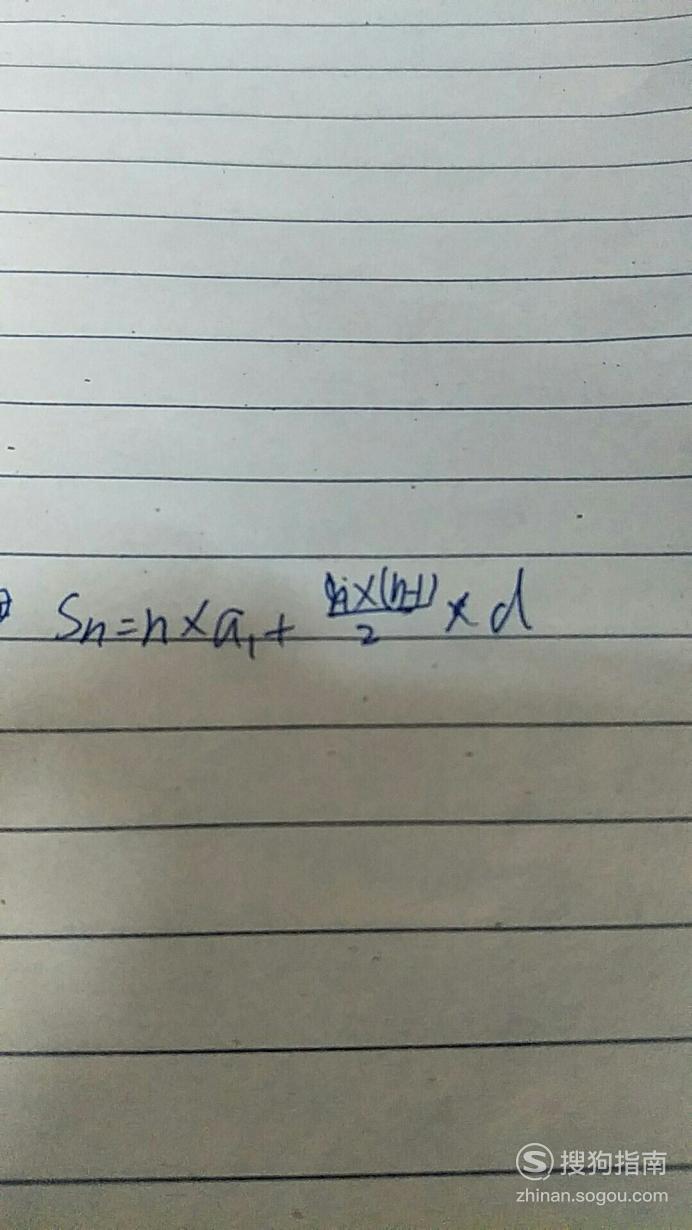 Sn=n×a₁+ n×(n-1)/2 ×d
搜狗指南
zhinan.sogou.com